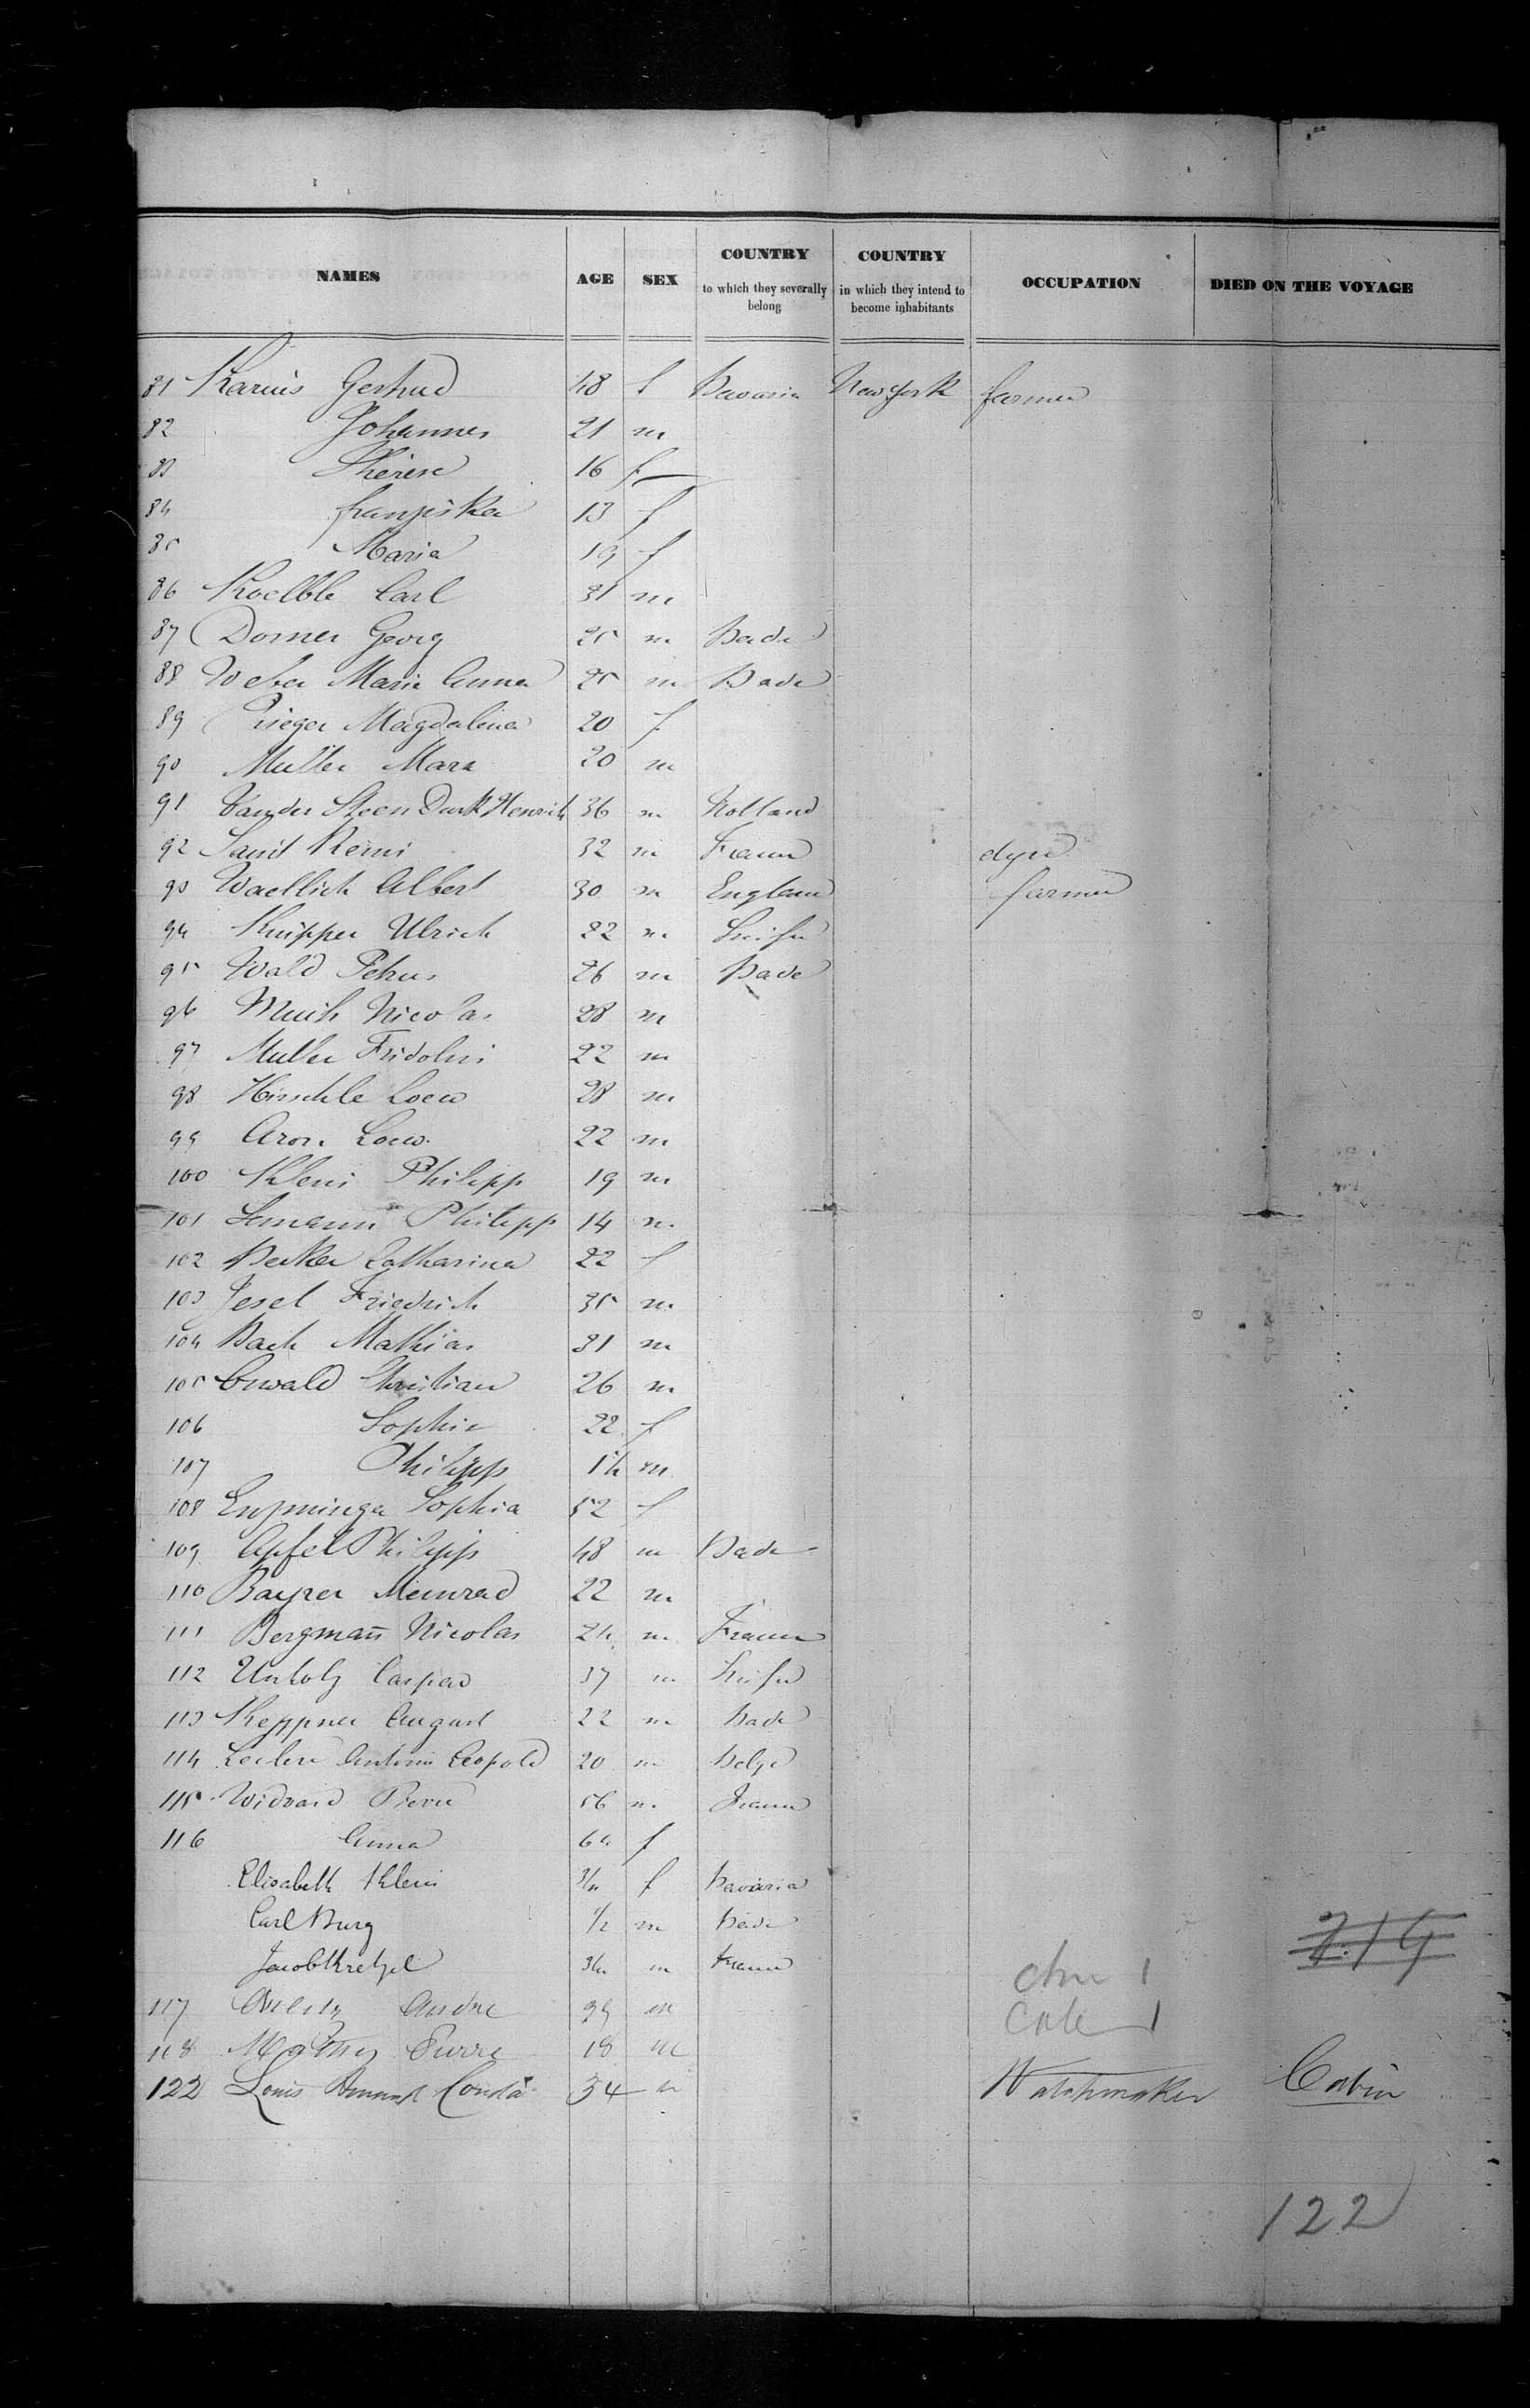 NAMES AGE SEX COUNTRY to which they severally belong COUNTRY in which they intend to become inhabitants OCCUPATION DIED ON THE VOYAGE
81 Karius Gertrud 48 f Bavaria New York farmer
82 Johannes 21 m
83 Therese 16 f
84 franziska 13 f
85 Maria 19 f
86 Koelble Carl 31 m
87 Dorner Georg 25 m Bade
88 Weber Marie Anna 25 m Bade
89 Rieger Magdalena 20 f
90 Muller Marx 20 m
91 Vander Steen Durk Henrich 36 m Holland
92 Saint Remi 32 m France dyer
93 Waellich Albert 30 m England farmer
94 Knipper Ulrich 22 m
95 Wald Petrus 26 m Bade
96 Nicolas 28 m
97 Muller Fridolin 22 m
98 Hirschle Loew 28 m
99 Aron Loew 22 m
100 Klein Philipp 19 m
101 Lemann Philipp 14 m
102 Becker Catharina 22 f
103 Jesel Friedrich 35 m
104 Bach Mathias 31 m
105 Oswald Christian 26 m
106 Sophie 22 f
107 Philipp m
108 Sophia 52 f
109 Apfel Philipp 48 m Bade
110 Meinrad 22 m
111 Bergmañ Nicolas 24 m France
112 Unholz Caspar 37 m
113 Keppner August 22 m Bade
114 Leclere Leopold 20 m Belge
115 Widvard Pierre 56 m France
116 Anna 64 f
Elisabeth Klein 3/4 f Bavaria
Carl Burg 1/2 m Bade
Jacob Kretzel 3/4 m France
117 Andre m
118 Pierre 18 m
122 Louis 34 m Watchmaker Cabin
122